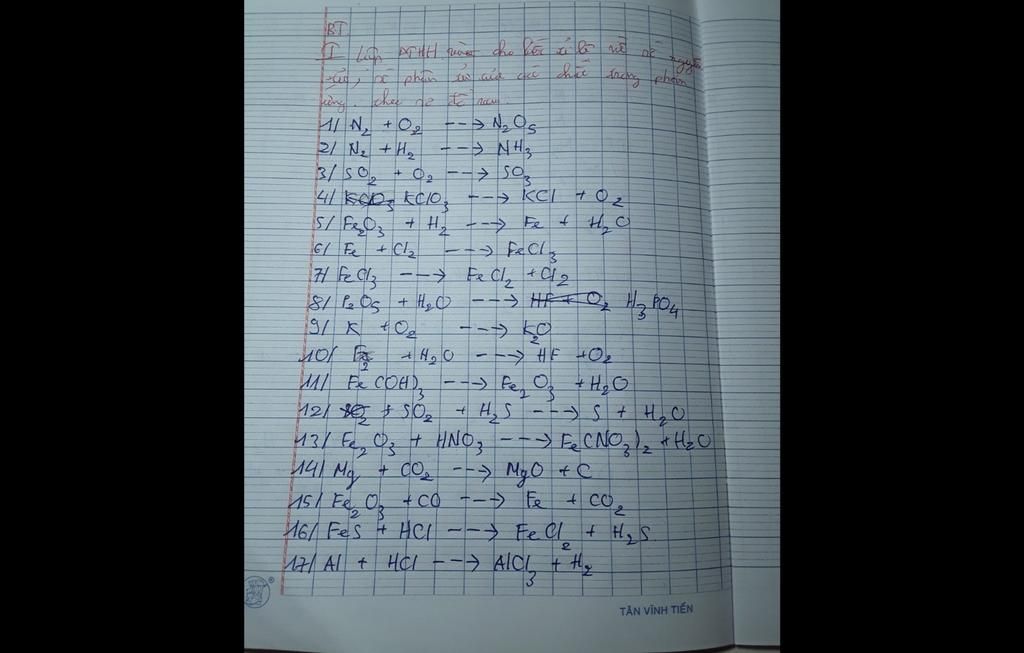 BT
I Lập PTHH rồi cho biết tỉ lệ về số nguyên
tử, số phân tử của các chất trong phản
ứng. theo sơ đồ sau.
1/ N₂ + O₂ ---> N₂O₅
2/ N₂ + H₂ ---> NH₃
3/ SO₂ + O₂ ---> SO₃
4/ KClO₃ ---> KCl + O₂
5/ Fe₂O₃ + H₂ ---> Fe + H₂O
6/ Fe + Cl₂ ---> FeCl₃
7/ FeCl₃ ---> FeCl₂ + Cl₂
8/ P₂O₅ + H₂O ---> H₃PO₄
9/ K + O₂ ---> K₂O
10/ F₂ + H₂O ---> HF + O₂
11/ Fe(OH)₃ ---> Fe₂O₃ + H₂O
12/ SO₂ + H₂S ---> S + H₂O
13/ Fe₂O₃ + HNO₃ ---> Fe(NO₃)₂ + H₂O
14/ Mg + CO₂ ---> MgO + C
15/ Fe₂O₃ + CO ---> Fe + CO₂
16/ FeS + HCl ---> FeCl₂ + H₂S
17/ Al + HCl ---> AlCl₃ + H₂
TÂN VĨNH TIẾN